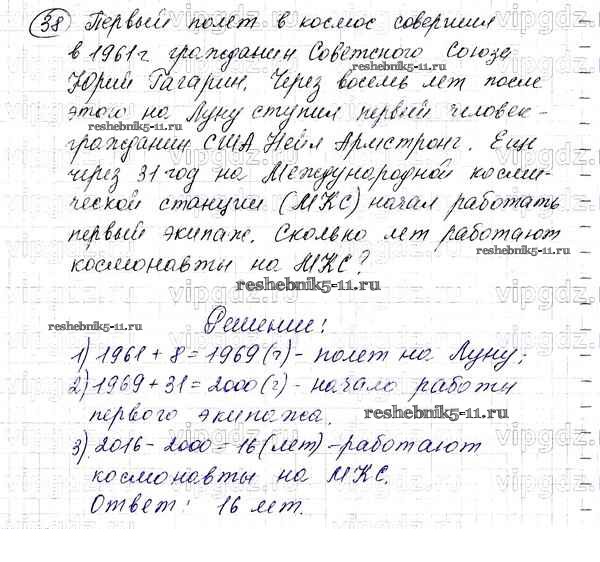 38 Первый полет в космос совершил
в 1961 г гражданин Советского Союза
reshebnik5-11.ru
Юрий Гагарин. Через восемь лет после
этого на Луну ступил первый человек-
reshebnik5-11.ru
гражданин США Нейл Армстронг. Еще
через 31 год на Международной косми-
ческой станции (МКС) начал работать
первый экипаж. Сколько лет работают
космонавты на МКС?
reshebnik5-11.ru
reshebnik5-11.ru
Решение:
reshebnik5-11.ru
1) 1961 + 8 = 1969 (г) - полет на Луну;
2) 1969 + 31 = 2000 (г) - начало работы
первого экипажа.
reshebnik5-11.ru
3) 2016 - 2000 = 16 (лет) - работают
космонавты на МКС.
Ответ: 16 лет.
vipgdz.com